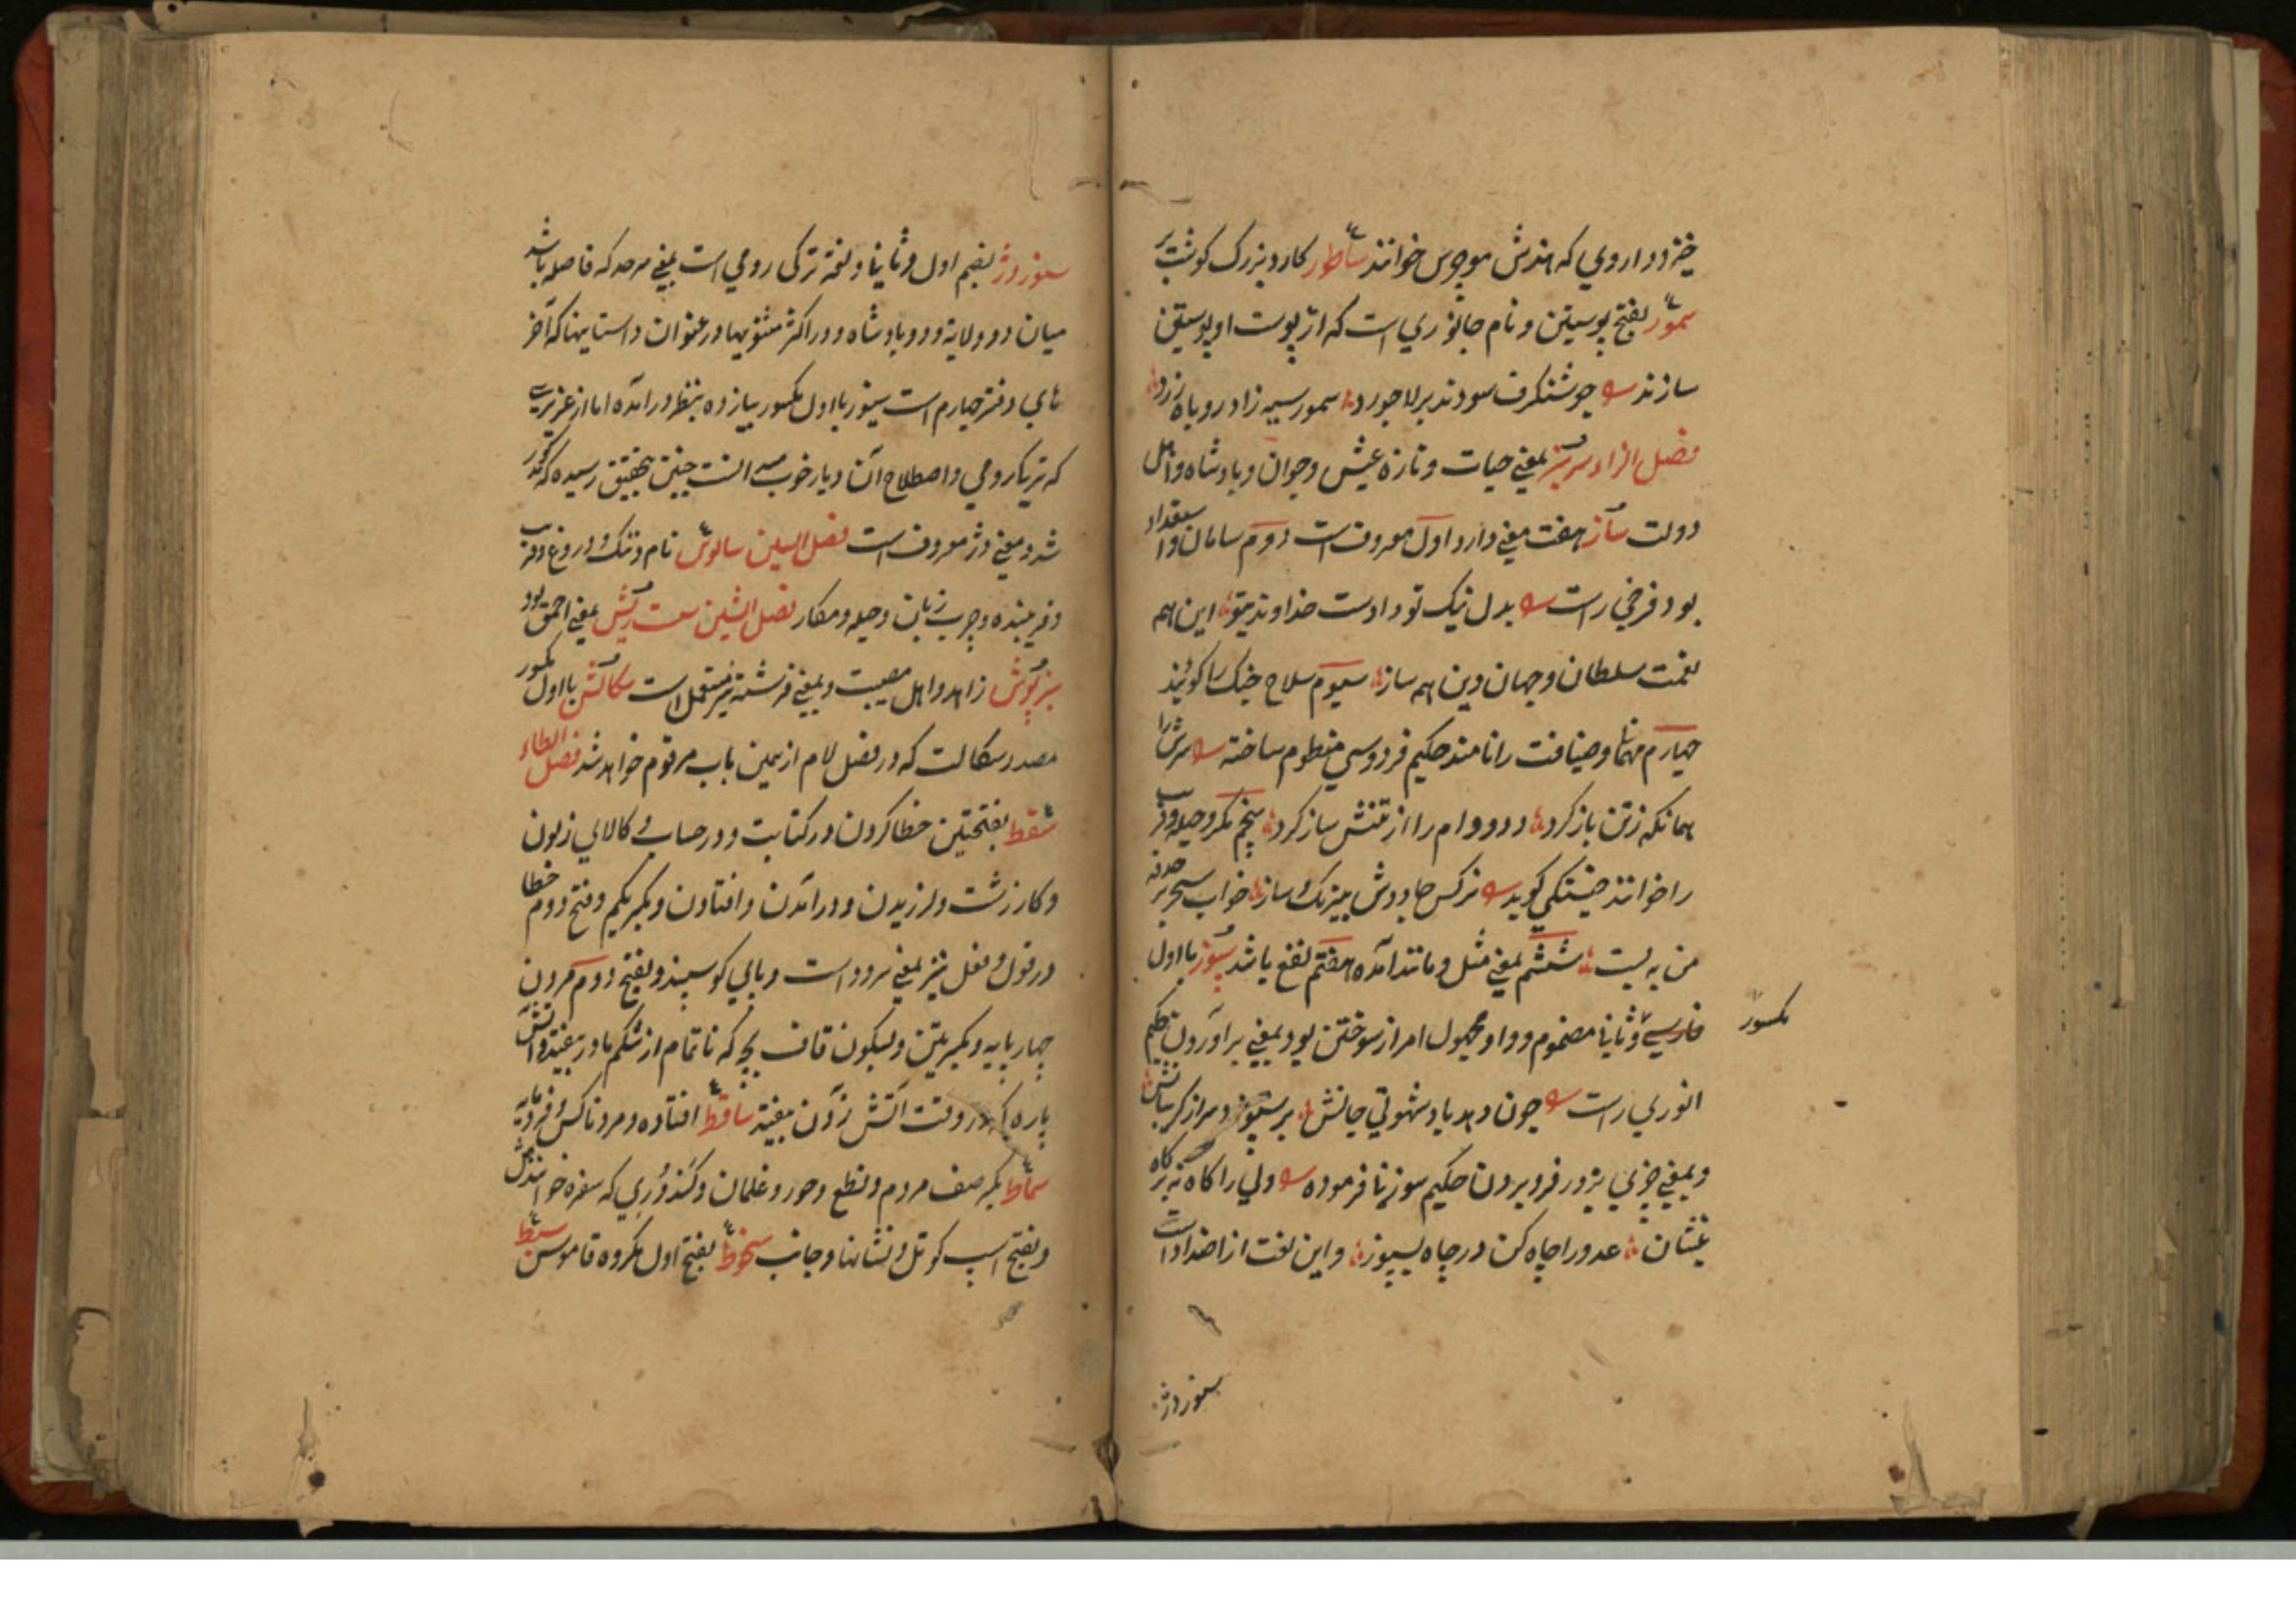 خیزد و داروی که هندش موچرس خوانند ساطور کارد بزرک کوشت بر
سمور بفتح پوستین و نام جانوری است که از پوست او پوستین
سازند چو شنکرف سودند بر لاجورد سمور سیه زاد روباه زرد
فصل الزاء سرسبز بمعنی حیات و تازه عیش و جوان و بادشاه و اهل
دولت ساز هفت معنی دارد اول معروف است دوم سامان و استعداد
بود فرخی راست بدل نیک تو دادست خداوند بتو این همه
نعمت سلطان و جهان وین همه ساز سیوم سلاح جنک را کویند
چهارم مهمانی و ضیافت را نامند حکیم فردوسی منظوم ساخته سرش را
همانکه زتن باز کرد دد و دام را از تنش ساز کرد پنجم مکر و حیله و فریب
را خوانند کوید نرکس جادوش بنیرنک ساز خواب بسحر
من به بست ششم بمعنی مثل و مانند آمده هفتم نفع باشد سپوز با اول
مکسور
فارسی و ثانی مضموم و واو مجهول امر از سوختن بود بمعنی برآوردن حکیم
انوری راست چون دهد باد شهوتی جانش بر سپوزد سر از کریبانش
و بمعنی چیزی بزور فرو بردن حکیم سوزنی فرموده ولی را کاه نه بر کاه
بنشان عدو را چاه کن در چاه بسپوز و این لغت از اضداد است
سنوردژ
سنوردژ بضم اول و ثانی و لغة ترکی رومی است بمعنی سرحد که فاصله باشد
میان دو ولایة و دو بادشاه و در اکثر مثنویها در عنوان داستانیها که آخر
های دفتر چهارم است سنور با اول مکسور بیا زده بنظر درآمده اما از عزیزی
که بترکی رومی و اصطلاح آن دیار خوب میدانست چنین بتحقیق رسیده که مذکور
شد و معنی دژ معروف است فصل السین سالوس نام و ننک و دروغ و فریب
و فریبنده و چرب زبان و حیله و مکار فصل الشین سست ریش بمعنی احمق بود
سبزپوش زاهد و اهل مصیبت و بمعنی فرشته نیز مستعمل است سکالش با اول مکسور
مصدر سکالت که در فصل لام از همین باب مرقوم خواهد شد فصل الطاء
سقط بفتحتین خطا کردن در کتابت و در حساب و کالای زبون
و کار زشت و لرزیدن و درآمدن و افتادن و بکسر یکم و فتح دوم خطا
در قول و فعل نیز بمعنی سرود است و پای کوسپند و بفتح دوم مردن
چهارپایه و بکسر یکم و بسکون قاف بچه که ناتمام از شکم مادر بیفتد و آتش
پاره که در وقت آتش زدن بیفتد ساقط افتاده و مرد ناکس و فرومایه
سماط بکسر صف مردم و نطع و حور و غلمان و کندوری که سفره خوانندش
و بفتح اسپ کوتل و نشانها و جانب سخوط بفتح اول مکروه قاموس سبط